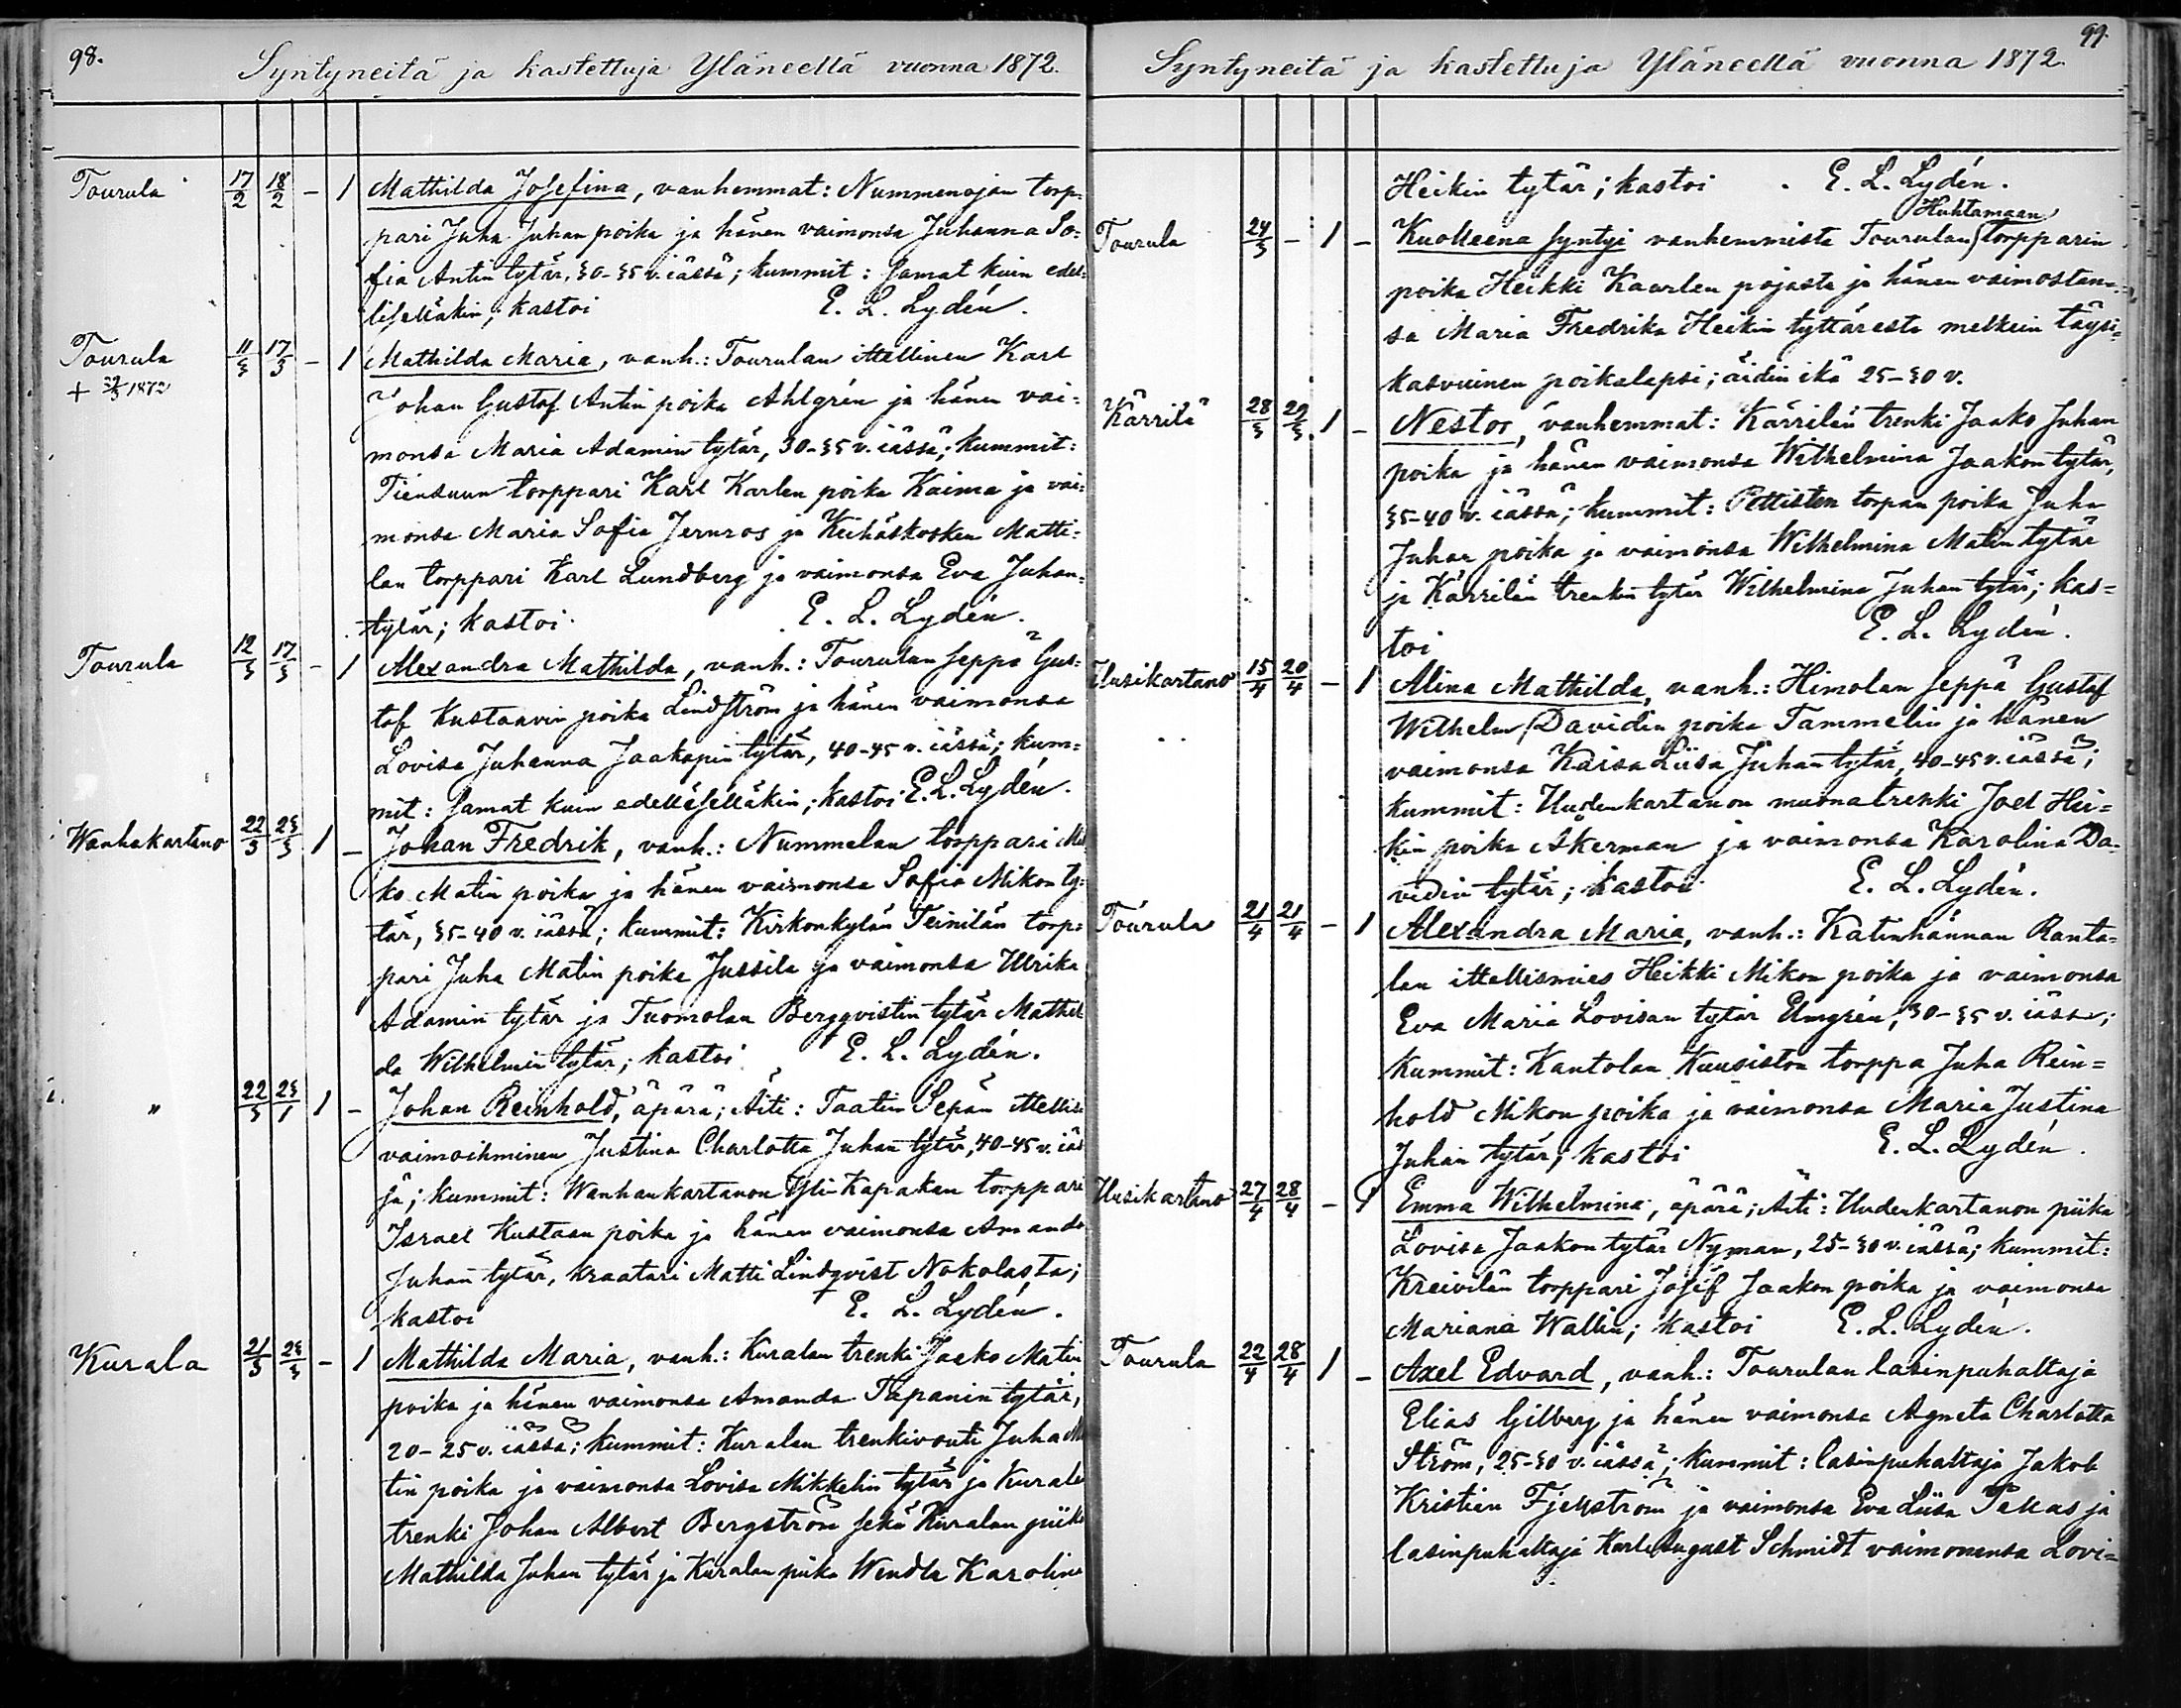 98.
Syntyneitä ja kastettuja Yläneellä vuonna 1872.
Tourula 17/2 18/2 – 1 Mathilda Josefina, vanhemmat: Nummenojan torp=
pari Juha Juhan poika ja hänen vaimonsa Juhanna So=
fia Antin tytär, 30-35 v. iässä; kummit: samat kuin edel=
liselläkin; kastoi E. L. Lydén.
Tourula 11/3 17/3 – 1 Mathilda Maria, vanh.: Tourulan ittellinen Karl
+ 1872
Johan Gustaf Antin poika Ahlgrén ja hänen vai=
monsa Maria Adamin tytär, 30-35 v. iässä; kummit:
Tiensuun torppari Karl Karlen poika Kaima ja vai=
monsa Maria Sofia Jernros ja Keihäskosken Matti=
lan torppari Karl Lundberg ja vaimonsa Eva Juhan=
tytär; kastoi E. L. Lydén.
Tourula 12/3 17/3 – 1 Alexandra Mathilda, vanh.: Tourulan seppä Gus=
taf Kustaavin poika Lindström ja hänen vaimonsa
Lovisa Juhanna Jaakopin tytär, 40-45 v. iässä; kum=
mit: samat kuin edelläselläkin; kastoi E. L. Lydén.
Wanhakartano 22/3 23/3 1 – Johan Fredrik, vanh.: Nummelan torppari Mi
ko Matin poika ja hänen vaimonsa Sofia Mikon ty=
tär, 35-40 v. iässä; kummit: Kirkonkylän Teinilän torp=
pari Juha Matin poika Jussila ja vaimonsa Ulrika
Adamin tytär ja Tuomolan Bergqvistin tytär Mathil
da Wilhelmin tytär; kastoi E. L. Lydén.
" 22/3 23/1 1 – Johan Reinhold, äpärä; Äiti: Taatin Sepän ittellis
vaimoihminen Justina Charlotta Juhan tytär, 40-45 v. iäs
sä; kummit: Wanhankartanon Yli-Kapakan torppari
Israel Kustaan poika ja hänen vaimonsa Amanda
Juhan tytär, kraatari Matti Lindqvist Nokolasta;
kastoi E. L. Lydén.
Kurala 21/3 24/3 – 1 Mathilda Maria, vanh.: Kuralan trenki Jaako Matin
poika ja hänen vaimonsa Amanda Tapanin tytär,
20-25 v. iässä; kummit: Kuralan trenkivouti Juha Ma
tin poika ja vaimonsa Lovisa Mikkelin tytär ja Kurala
trenki Johan Albert Bergström sekä Kuralan piika
Mathilda Juhan tytär ja Kuralan piika Wendla Karolina
99.
Syntyneitä ja kastettuja Yläneellä vuonna 1872.
Heikin tytär; kastoi E. L. Lydén.
Huhtamaan
Tourula 24/3 – 1 – Kuolleena syntyi vanhemmista Tourulan torpparin
poika Heikki Kaarlen pojasta ja hänen vaimostan=
sa Maria Fredrika Heikin tyttärestä melkein täysi=
kasvuinen poikalapsi; äidin ikä 25-30 v.
Kärrilä 28/3 29/3 1 – Nestor, vanhemmat: Kärrilän trenki Jaako Juhan
poika ja hänen vaimonsa Wilhelmina Jaakon tytär,
35-40 v. iässä; kummit: Pettisten torpan poika Juha
Juhan poika ja vaimonsa Wilhelmina Matin tytär
ja Kärrilän trenkin tytär Wilhelmina Juhan tytär; kas=
toi E. L. Lydén.
Uusikartano 15/4 20/4 – 1 Alina Mathilda, vanh.: Himolan seppä Gustaf
Wilhelm Davidin poika Tammelin ja hänen
vaimonsa Kaisa Liisa Juhan tytär, 40-45 v. iässä;
kummit: Uudenkartanon muonatrenki Joel Hei=
kin poika Åkerman ja vaimonsa Karolina Da=
vidin tytär; kastoi E. L. Lydén.
Tourula 21/4 21/4 – 1 Alexandra Maria, vanh.: Katinhännan Ranta=
lan ittellismies Heikki Mikon poika ja vaimonsa
Eva Maria Lovisan tytär Elmgrén, 30-35 v. iässä;
kummit: Kantolan Kuusiston torppa Juha Rein=
hold Mikon poika ja vaimonsa Maria Justina
Juhan tytär; kastoi E. L. Lydén.
Uusikartano 27/4 28/4 – 1 Emma Wilhelmina, äpärä; Äiti: Uudenkartanon piika
Lovisa Jaakon tytär Nyman, 25-30 v. iässä; kummit:
Kreivilän torppari Josef Jaakon poika ja vaimonsa
Mariana Wallin; kastoi E. L. Lydén.
Tourula 22/4 28/4 1 – Axel Edvard, vanh.: Tourulan lasinpuhaltaja
Elias Gilberg ja hänen vaimonsa Agneta Charlotta
Ström, 25-30 v. iässä; kummit: lasinpuhaltaja Jakob
Kristian Fjellström ja vaimonsa Eva Liisa ja
lasinpuhaltaja Karl August Schmidt vaimonensa Lovi=